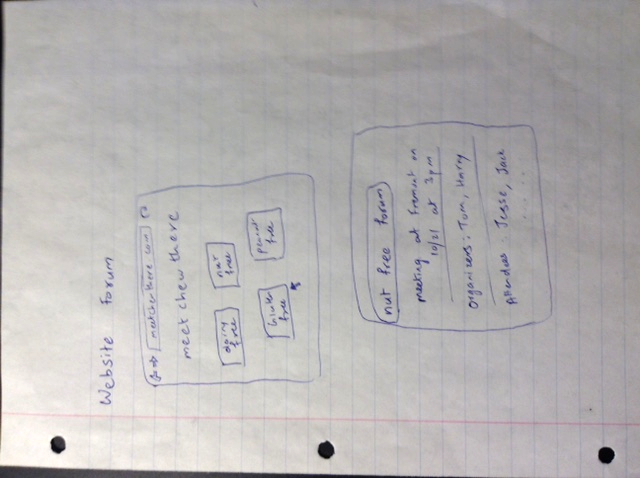 Website Forum
meet chew there
dairy free
nut free
Gluten free
peanut free
nut free forum
meeting at fremont on
10/21 at 3pm
organizers: Tom, Harry
Attendees: Jesse, Jack